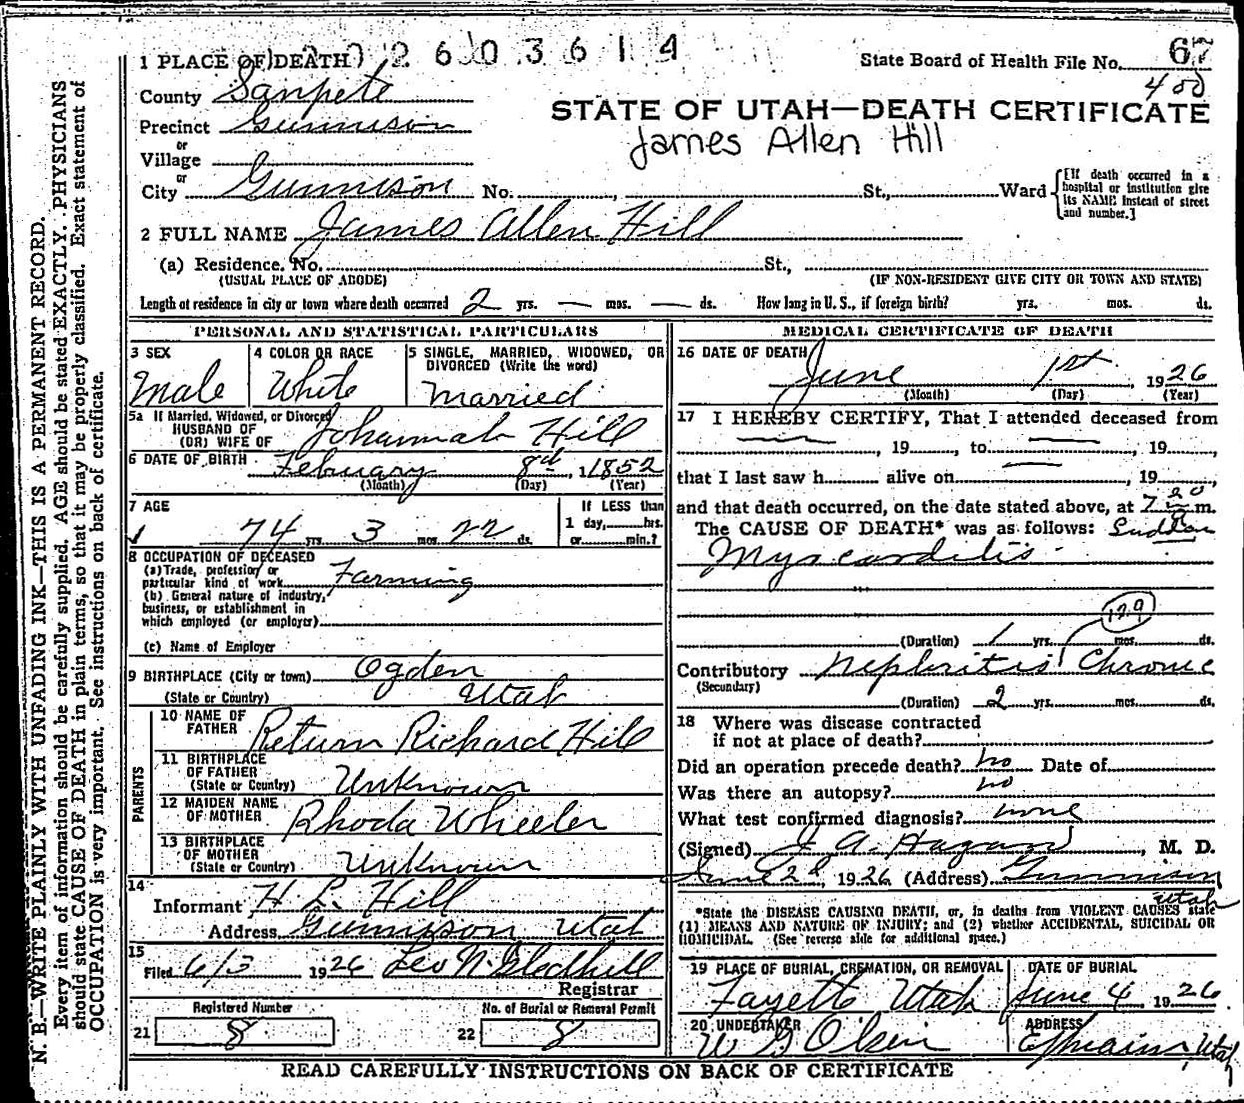 1 PLACE OF DEATH 2 6 0 3 6 1 4
State Board of Health File No. 67
400
County Sanpete
STATE OF UTAH—DEATH CERTIFICATE
Precinct Gunnison
James Allen Hill
or
Village
or
City Gunnison No. , St., Ward
[If death occurred in a hospital or institution give its NAME instead of street and number.]
2 FULL NAME James Allen Hill
(a) Residence. No. St.,
(USUAL PLACE OF ABODE) (IF NON-RESIDENT GIVE CITY OR TOWN AND STATE)
Length of residence in city or town where death occurred 2 yrs. — mos. — ds. How long in U. S., if foreign birth? yrs. mos. ds.
PERSONAL AND STATISTICAL PARTICULARS
3 SEX Male
4 COLOR OR RACE White
5 SINGLE, MARRIED, WIDOWED, OR DIVORCED (Write the word) Married
5a If Married, Widowed, or Divorced
HUSBAND OF
(OR) WIFE OF Johannah Hill
6 DATE OF BIRTH February 8th, 1 1852
(Month) (Day) (Year)
7 AGE
74 yrs. 3 mos. 22 ds.
If LESS than
1 day, hrs.
or min.?
8 OCCUPATION OF DECEASED
(a) Trade, profession or
particular kind of work Farming
(b) General nature of industry,
business, or establishment in
which employed (or employer)
(c) Name of Employer
9 BIRTHPLACE (City or town) Ogden
(State or Country) Utah
PARENTS
10 NAME OF
FATHER Return Richard Hill
11 BIRTHPLACE
OF FATHER
(State or Country) Unknown
12 MAIDEN NAME
OF MOTHER Rhoda Wheeler
13 BIRTHPLACE
OF MOTHER
(State or Country) Unknown
14
Informant H L. Hill
Address Gunnison Utah
15
Filed 6/3 1926 Leo N Gledhill
Registrar
Registered Number
21 8
No. of Burial or Removal Permit
22 8
MEDICAL CERTIFICATE OF DEATH
16 DATE OF DEATH
June 1st, 1926
(Month) (Day) (Year)
17 I HEREBY CERTIFY, That I attended deceased from
, 19 , to , 19 ,
that I last saw h alive on , 19 ,
and that death occurred, on the date stated above, at 7 20 m.
The CAUSE OF DEATH* was as follows: Sudden
Myocardelis
129
(Duration) 1 yrs. mos. ds.
Contributory Nephritis Chronic
(Secondary)
(Duration) 2 yrs. mos. ds.
18 Where was disease contracted
if not at place of death?
Did an operation precede death? no Date of
Was there an autopsy? no
What test confirmed diagnosis? none
(Signed) J A. Hagan, M. D.
June 2d, 1926 (Address) Gunnison
Utah
*State the DISEASE CAUSING DEATH, or, in deaths from VIOLENT CAUSES state
(1) MEANS AND NATURE OF INJURY; and (2) whether ACCIDENTAL, SUICIDAL OR
HOMICIDAL. (See reverse side for additional space.)
19 PLACE OF BURIAL, CREMATION, OR REMOVAL
Fayette Utah
DATE OF BURIAL
June 4 1926
20 UNDERTAKER
W G Olsen
ADDRESS
Ephraim, Utah
READ CAREFULLY INSTRUCTIONS ON BACK OF CERTIFICATE
N. B.—WRITE PLAINLY WITH UNFADING INK—THIS IS A PERMANENT RECORD.
Every item of information should be carefully supplied. AGE should be stated EXACTLY. PHYSICIANS
should state CAUSE OF DEATH in plain terms, so that it may be properly classified. Exact statement of
OCCUPATION is very important. See instructions on back of certificate.